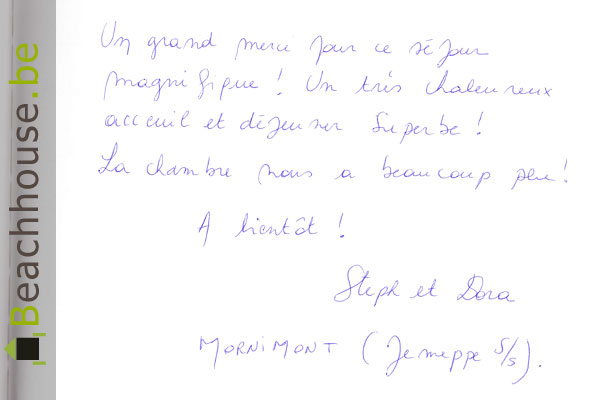 Beachhouse.be
Un grand merci pour ce séjour
magnifique ! Un très chaleureux
acceuil et déjeuner superbe !
La chambre nous a beaucoup plu !
A bientôt !
Steph et Dora
MORNIMONT (Jemeppe S/S).